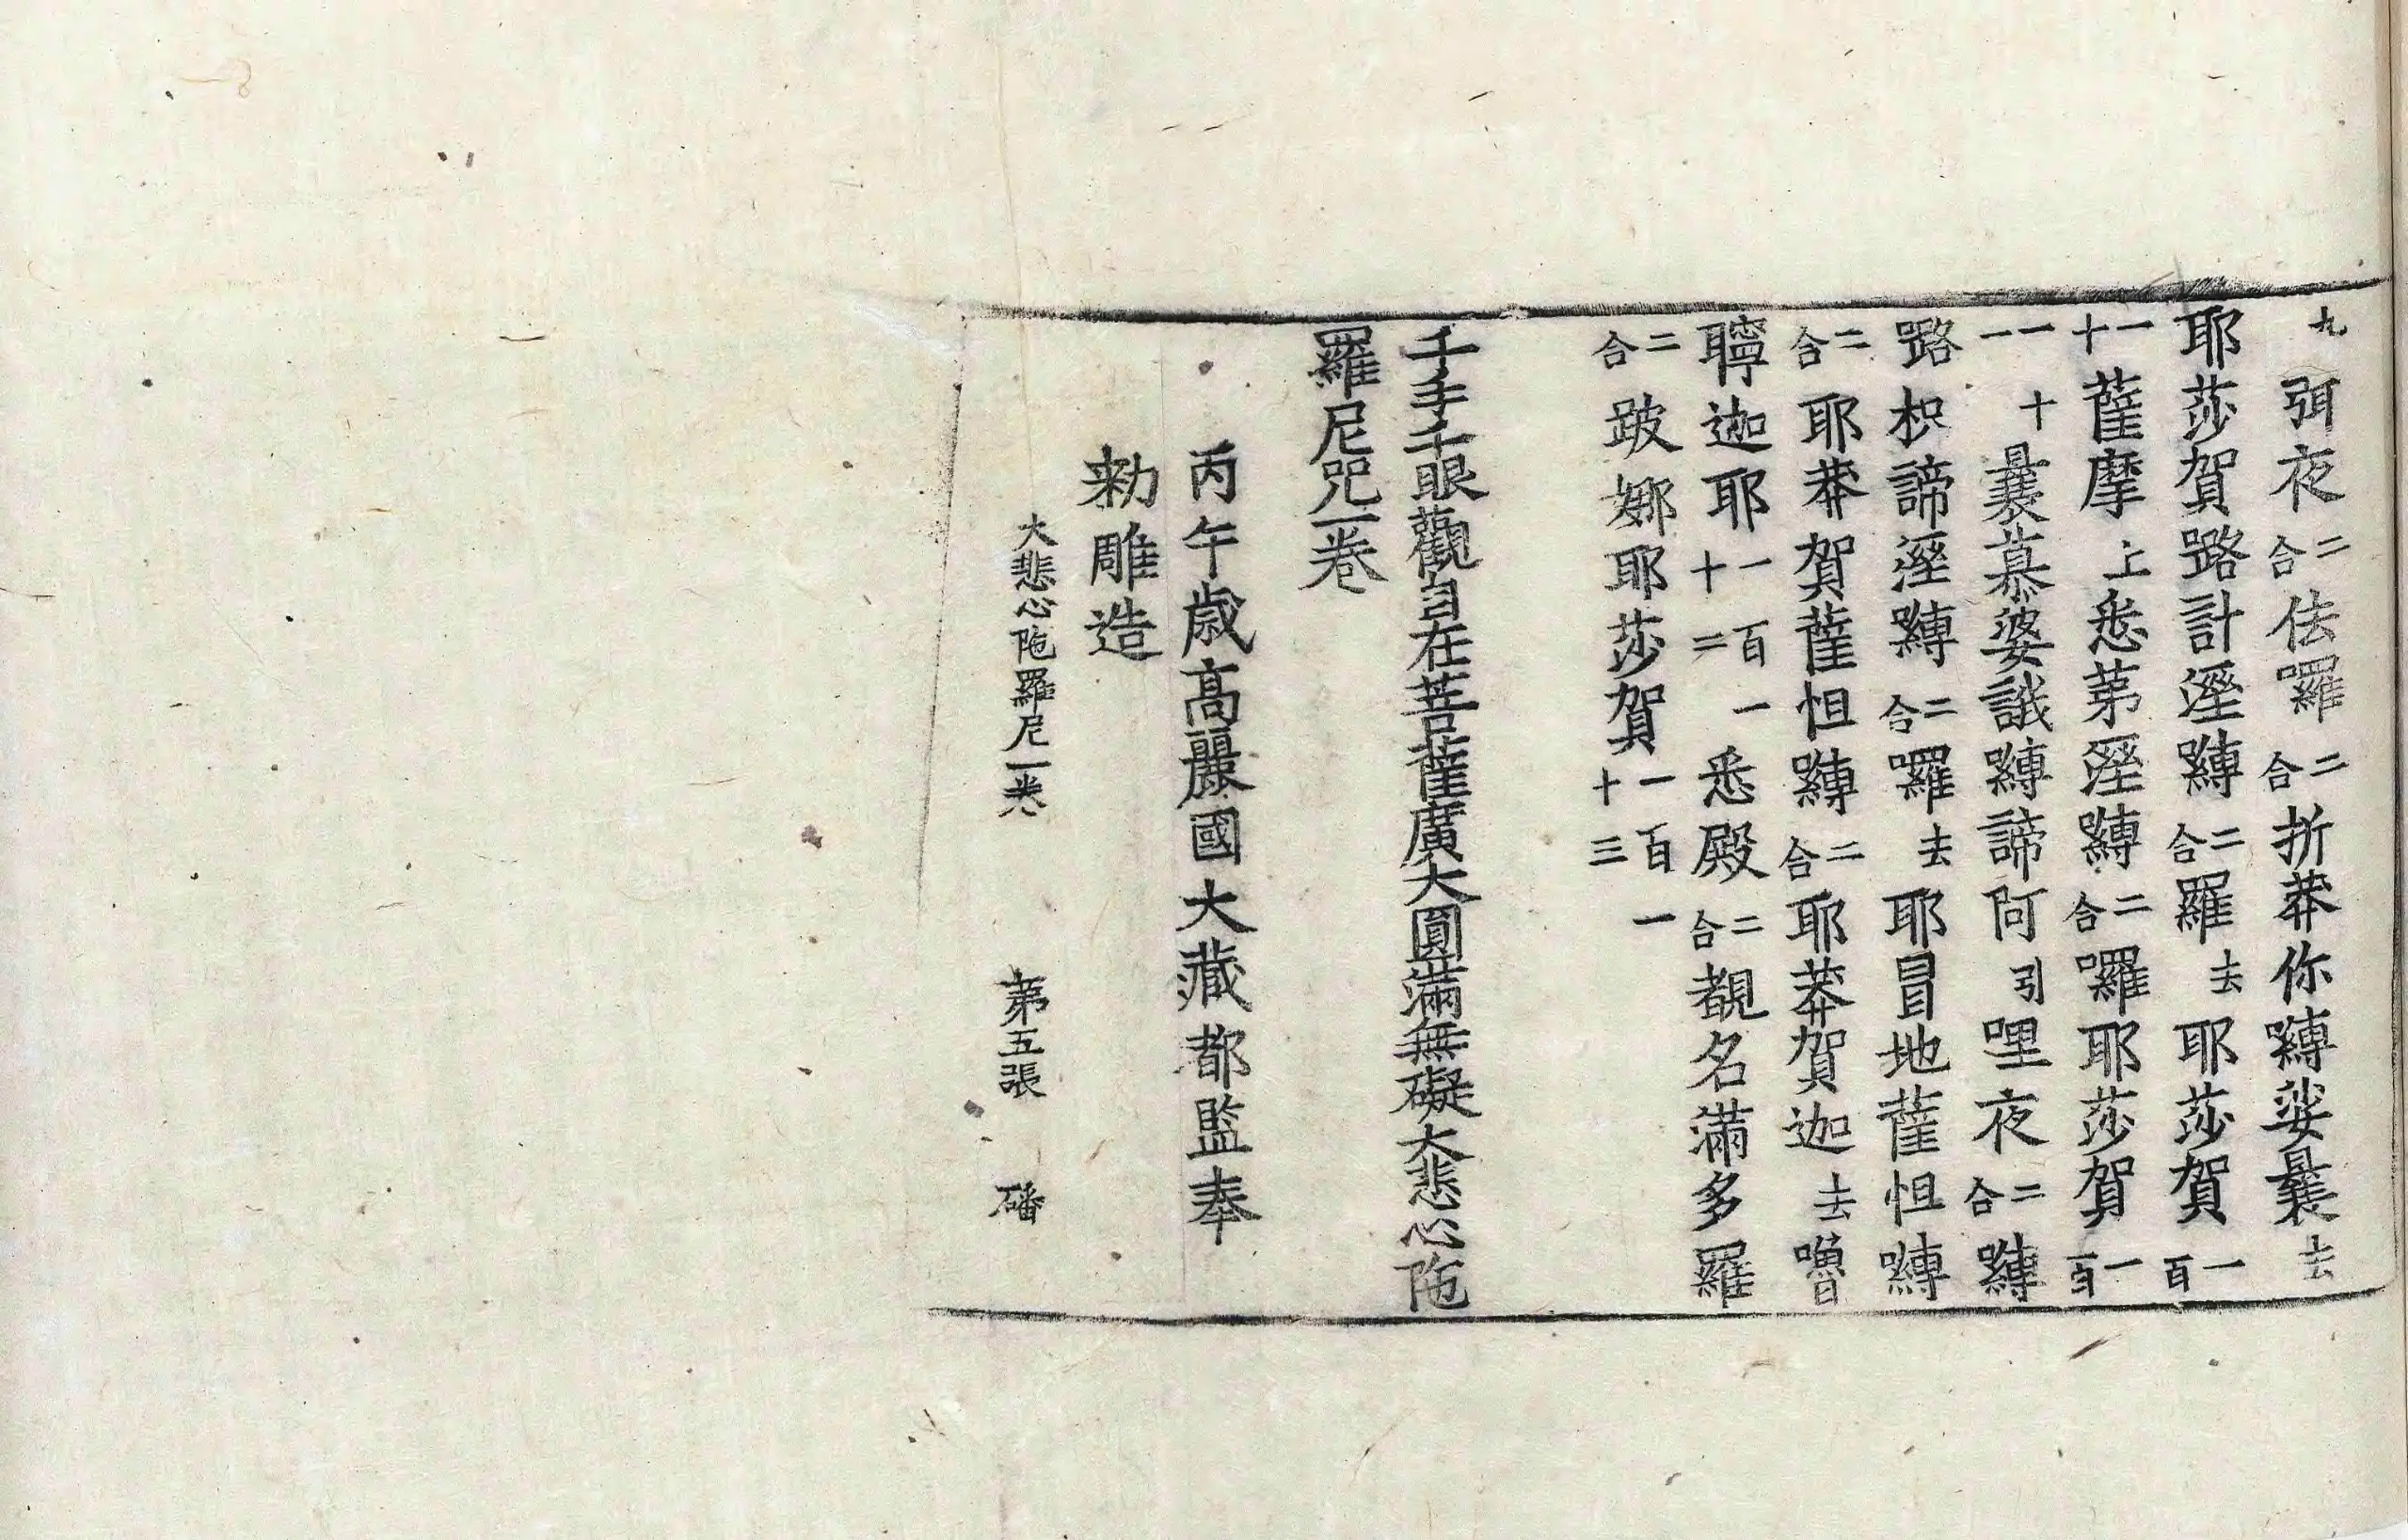 九弭夜二合佉囉二合折莽你嚩娑曩去
耶莎賀路計溼嚩二合羅去耶莎賀一百
一十薩摩上悉第溼嚩二合囉耶莎賀一百
一十一曩慕婆誐嚩諦阿引哩夜二合嚩
路枳諦溼嚩二合囉去耶冒地薩怛嚩
二合耶莽賀薩怛嚩二合耶莽賀迦去嚕
聹迦耶一百一十二悉殿二合覩名滿多羅
二合跛娜耶莎賀一百一十三
千手千眼觀自在菩薩廣大圓滿無礙大悲心陁
羅尼咒一卷
丙午歲高麗國大藏都監奉
勑雕造
大悲心陁羅尼一卷 第五張 磻